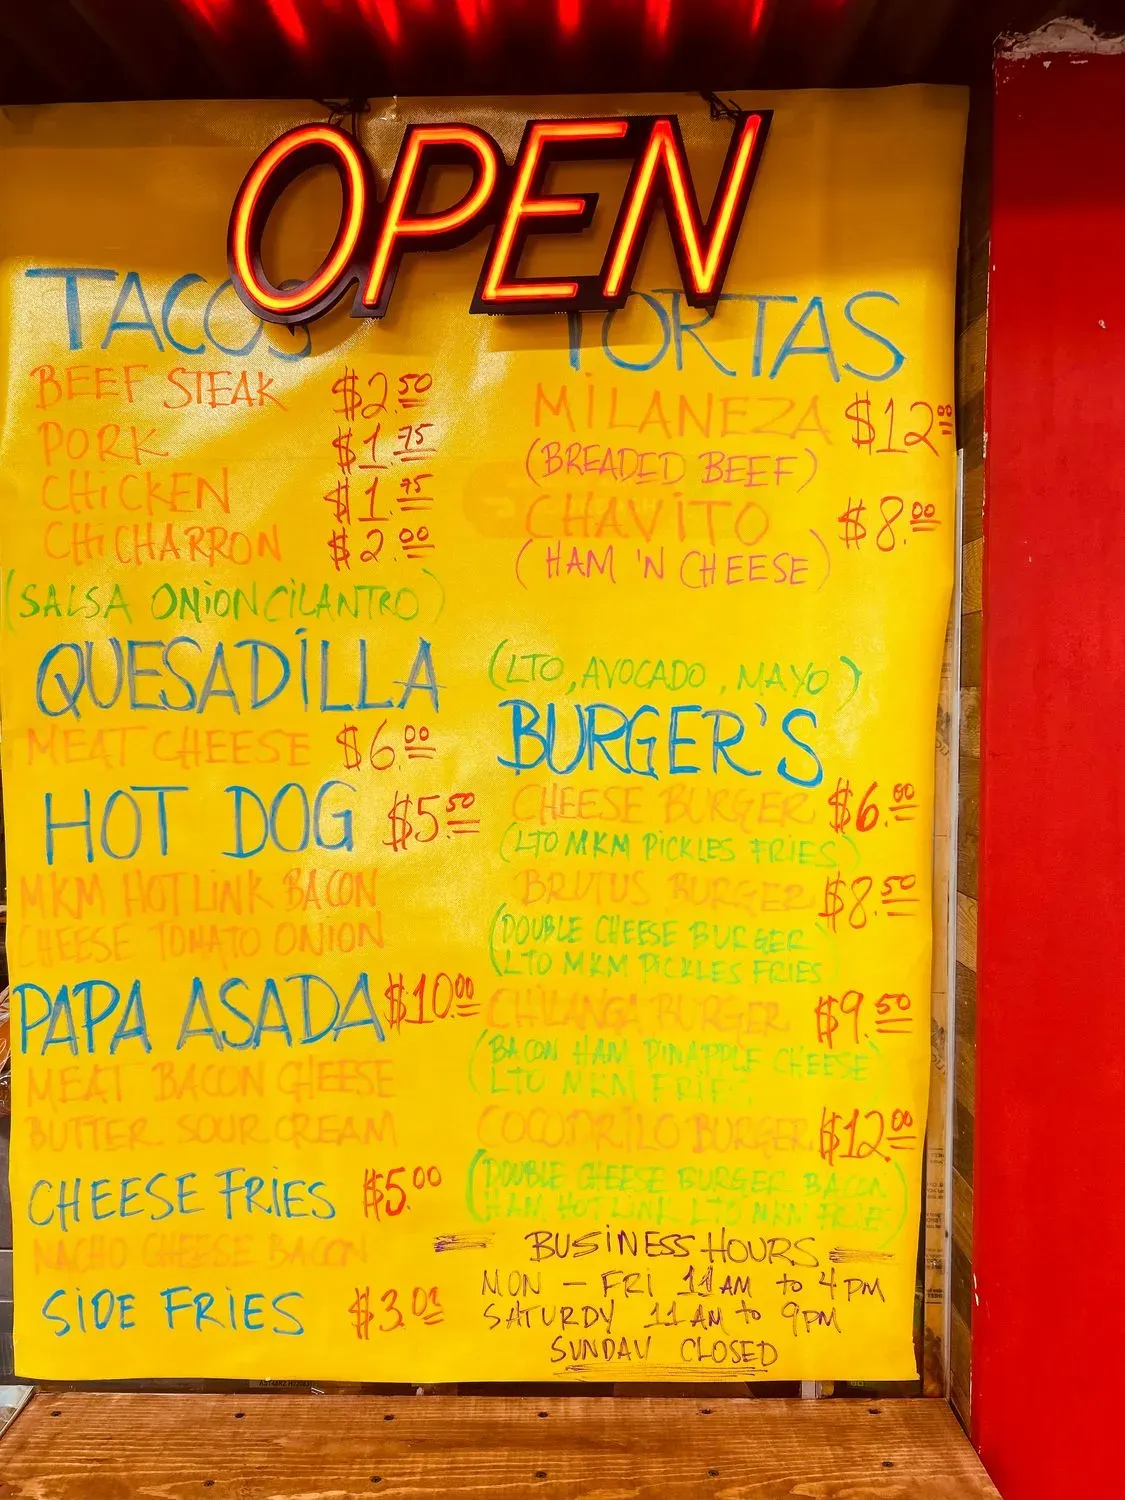 OPEN
TACOS
BEEF STEAK $2.50
PORK $1.75
CHiCKEN $1.75
CHiCHARRON $2.00
(SALSA ONiON CiLANTRO)
QUESADiLLA
MEAT CHEESE $6.00
HOT DOG $5.50
MKM HOTLiNK BACON
CHEESE TOMATO ONiON
PAPA ASADA $10.00
MEAT BACON CHEESE
BUTTER SOUR CREAM
CHEESE FRiES $5.00
NACHO CHEESE BACON
SiDE FRiES
TORTAS
MiLANEZA $12.00
(BREADED BEEF)
CHAViTO $8.00
(HAM 'N CHEESE)
(LTO, AVOCADO, MAYO)
BURGER'S
CHEESE BURGER $6.00
(LTO MKM PiCKLES FRiES)
BRUTUS BURGER $8.50
(DOUBLE CHEESE BURGER
LTO MKM PiCKLES FRiES
CHiLANGA BURGER $9.50
(BACON HAM PiNAPPLE CHEESE
LTO MKM FRiES
COCODRiLO BURGER $12.00
(DOUBLE CHEESE BURGER BACON
HAM HOTLiNK LTO MKM FRiES)
BUSiNESS HOURS
MON - FRI 11AM to 4PM
SATURDY 11AM to 9PM
SUNDAY CLOSED